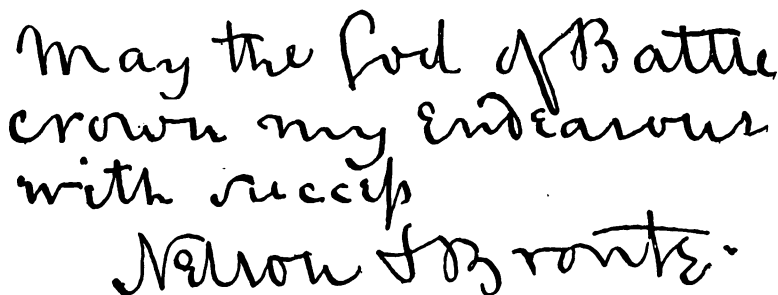 May the God of Battle
crown my Endeavours
with succeſs
Nelson & Bronte.